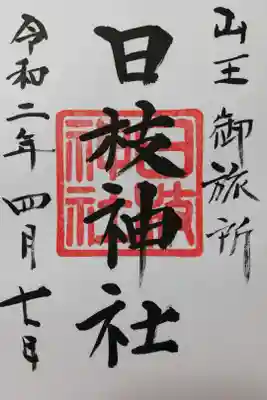 山王御旅所
日枝神社
日枝神社
令和二年四月十七日